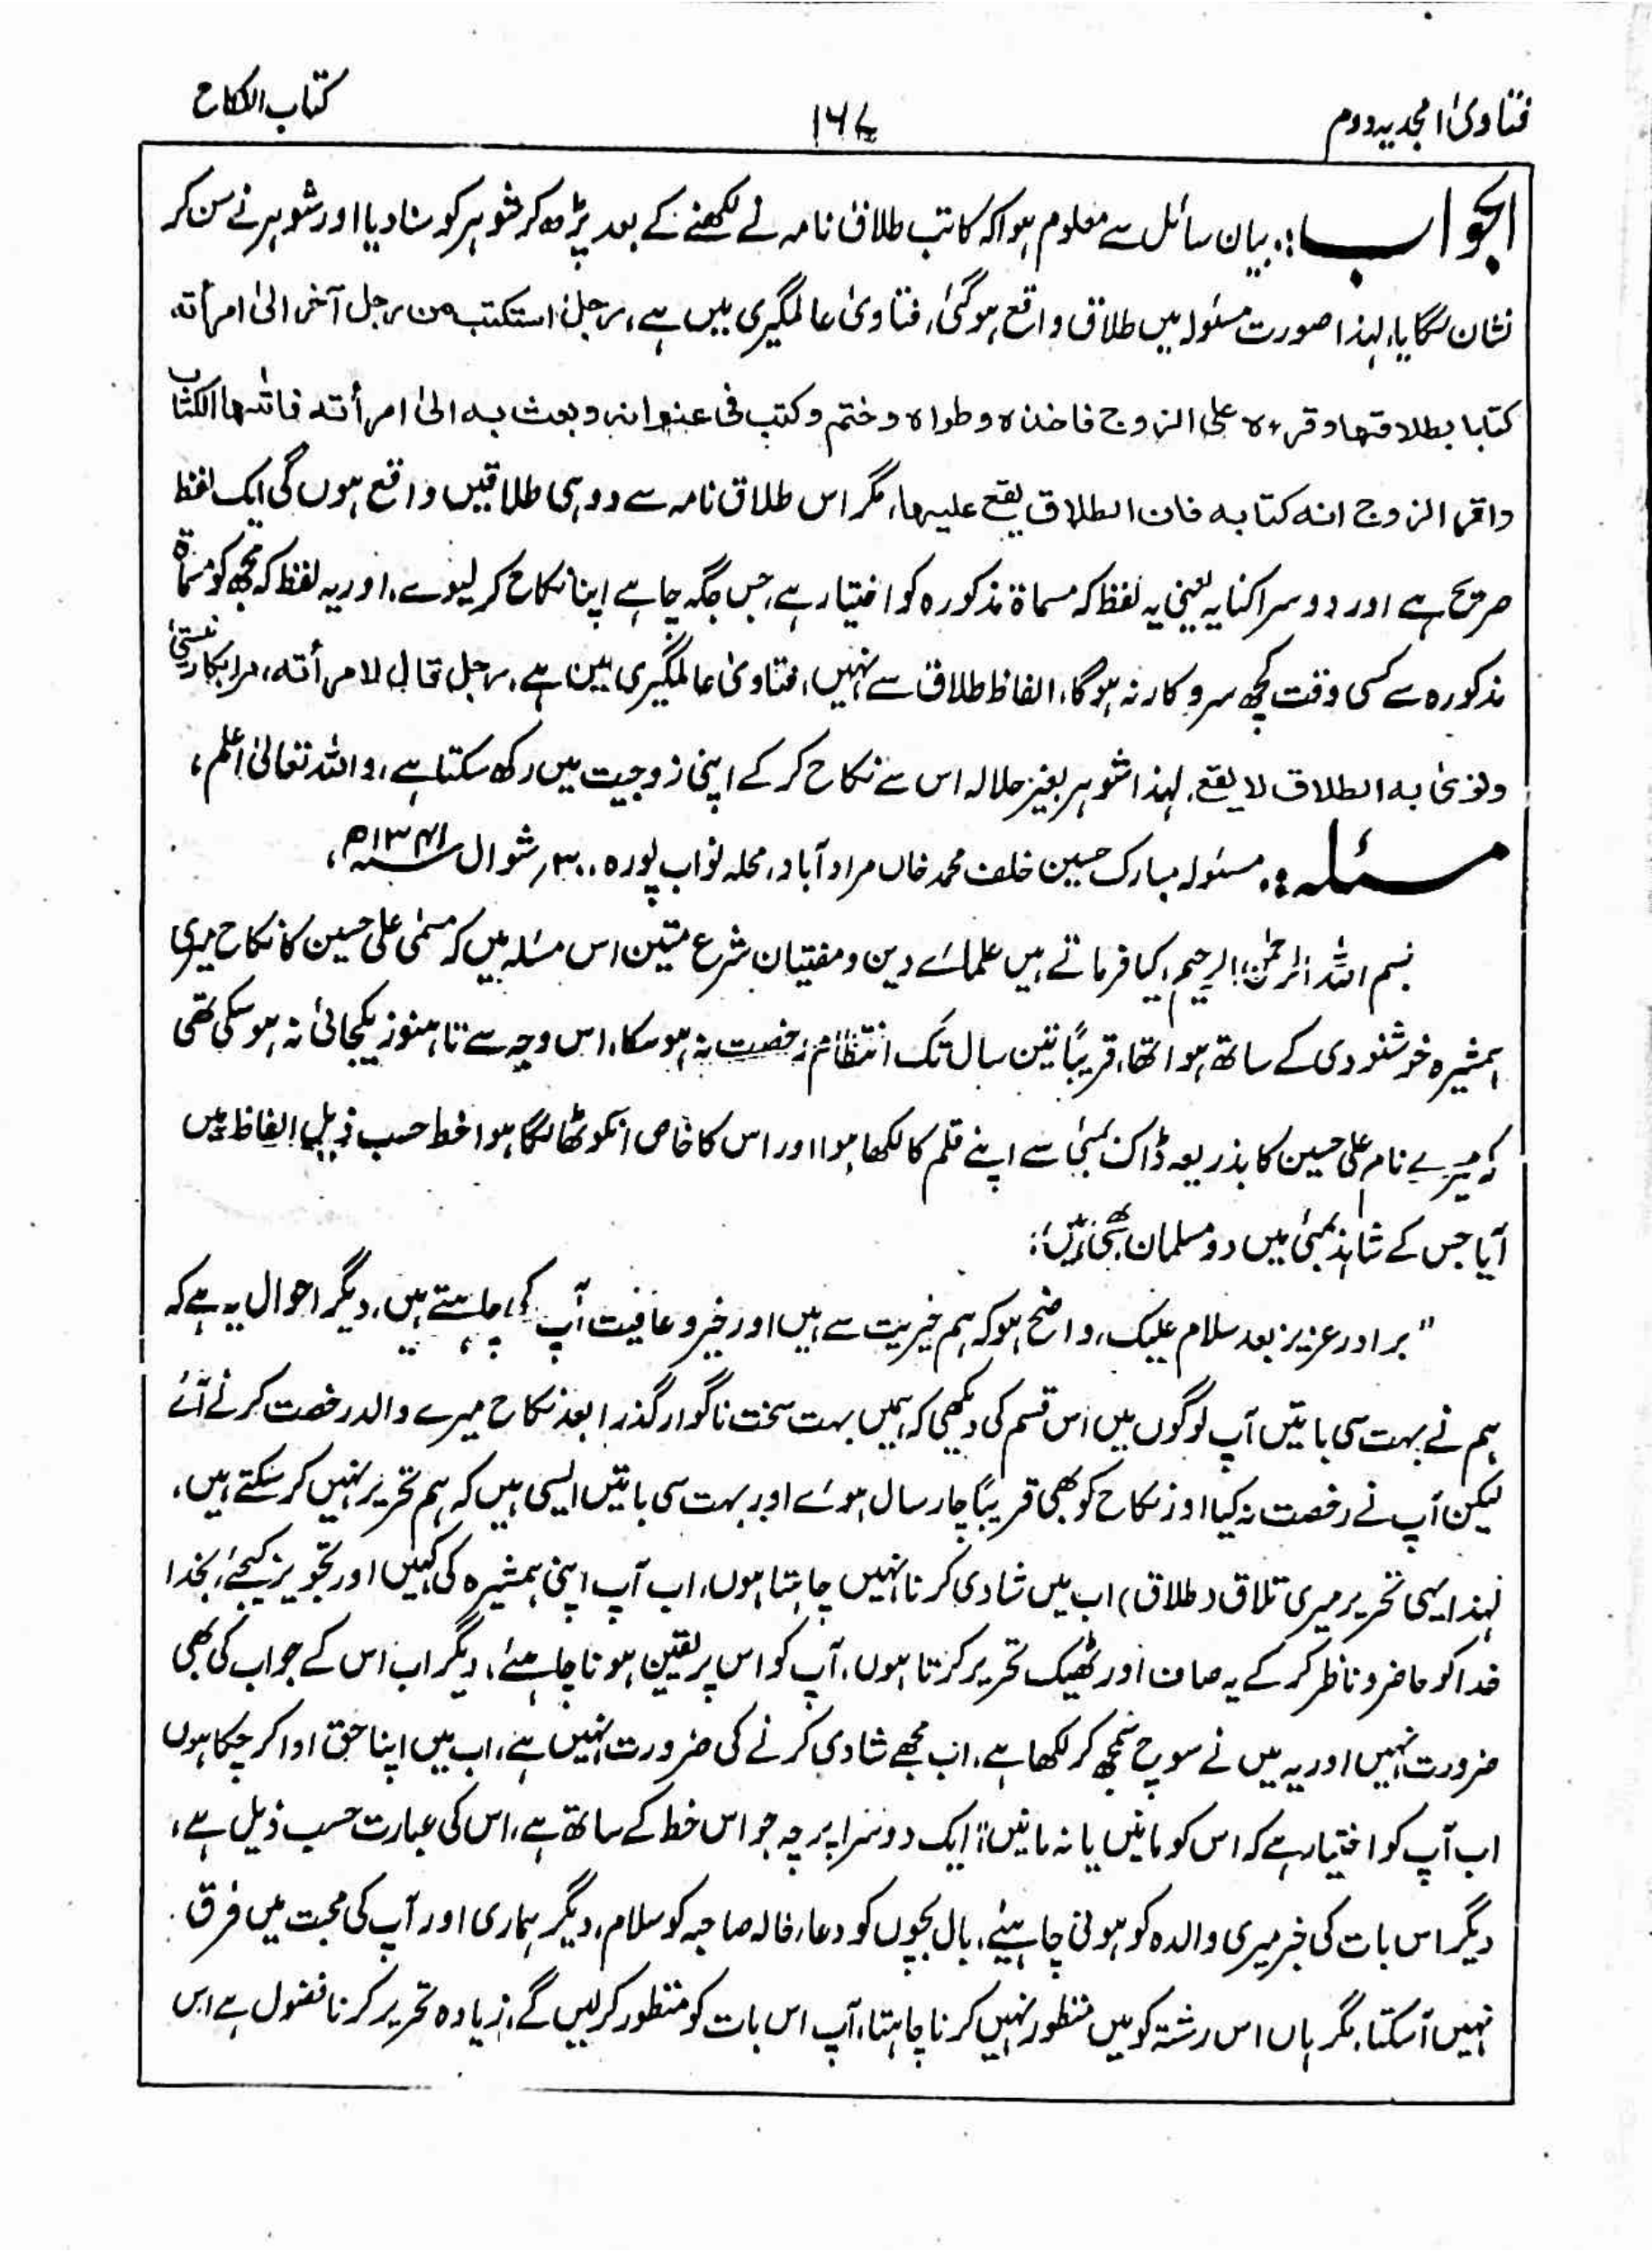 فتاویٰ امجدیہ دوم
۱۶۷
کتاب النکاح
الجواب:۔ بیان سائل سے معلوم ہوا کہ کاتب طلاق نامہ نے لکھنے کے بعد پڑھ کر شوہر کو سنا دیا اور شوہر نے سن کر
نشان لگایا، لہذا صورت مسئولہ میں طلاق واقع ہوگئی، فتاویٰ عالمگیری میں ہے، رجل استکتب من رجل آخر الیٰ امرأتہ
کتابا بطلاقھا وقرءہ علی الزوج فاخذہ وطواہ وختم وکتب فی عنوانہ وبعث بہ الیٰ امرأتہ فاتاھا الکتاب
واقر الزوج انہ کتابہ فان الطلاق یقع علیھا، مگر اس طلاق نامہ سے دو ہی طلاقیں واقع ہوں گی ایک لفظ
صریح ہے اور دوسرا کنایہ یعنی یہ لفظ کہ مسماۃ مذکورہ کو اختیار ہے، جس جگہ چاہے اپنا نکاح کر لیوے، اور یہ لفظ کہ مجھ کو مسماۃ
مذکورہ سے کسی وقت کچھ سروکار نہ ہوگا، الفاظ طلاق سے نہیں، فتاویٰ عالمگیری میں ہے، رجل قال لامرأتہ، مرا بکار نیستیٔ
ونویٰ بہ الطلاق لا یقع، لہذا شوہر بغیر حلالہ اس سے نکاح کر کے اپنی زوجیت میں رکھ سکتا ہے، واللہ تعالیٰ اعلم،
مسئلہ:۔ مسئولہ مبارک حسین خلف محمد خاں مراد آباد، محلہ نواب پورہ ۳۰؍ شوال ۱۳۴۱ھ،
بسم اللہ الرحمٰن الرحیم، کیا فرماتے ہیں علمائے دین و مفتیان شرع متین اس مسئلہ میں کہ مسمیٰ علی حسین کا نکاح میری
ہمشیرہ خوشنودی کے ساتھ ہوا تھا، قریباً تین سال تک انتظام رخصت نہ ہو سکا، اس وجہ سے تا ہنوز یکجائی نہ ہو سکی تھی
کہ میرے نام علی حسین کا بذریعہ ڈاک بمبئی سے اپنے قلم کا لکھا ہوا اور اس کا خاص انگوٹھا لگا ہوا خط حسب ذیل الفاظ میں
آیا جس کے شاہد بمبئی میں دو مسلمان بھی ہیں:
"برادر عزیز بعد سلام علیک، واضح ہو کہ ہم خیریت سے ہیں اور خیر و عافیت آپ کی چاہتے ہیں، دیگر احوال یہ ہے کہ
ہم نے بہت سی باتیں آپ لوگوں میں اس قسم کی دیکھی کہ ہمیں بہت سخت ناگوار گذرا بعد نکاح میرے والد رخصت کرنے آئے
لیکن آپ نے رخصت نہ کیا اور نکاح کو بھی قریباً چار سال ہوئے اور بہت سی باتیں ایسی ہیں کہ ہم تحریر نہیں کر سکتے ہیں،
لہذا یہی تحریر میری تلاق (طلاق) اب میں شادی کرنا نہیں چاہتا ہوں، اب آپ اپنی ہمشیرہ کی کہیں اور تجویز کیجئے، بخدا
خدا کو حاضر و ناظر کر کے یہ صاف اور ٹھیک تحریر کرتا ہوں، آپ کو اس پر یقین ہونا چاہئے، دیگر اب اس کے جواب کی بھی
ضرورت نہیں اور یہ میں نے سوچ سمجھ کر لکھا ہے، اب مجھے شادی کرنے کی ضرورت نہیں ہے، اب میں اپنا حق ادا کر چکا ہوں
اب آپ کو اختیار ہے کہ اس کو مانیں یا نہ مانیں" ایک دوسرا پرچہ جو اس خط کے ساتھ ہے، اس کی عبارت حسب ذیل ہے،
دیگر اس بات کی خبر میری والدہ کو ہونی چاہیئے، بال بچوں کو دعا، خالہ صاحبہ کو سلام، دیگر ہماری اور آپ کی محبت میں فرق
نہیں آسکتا، مگر ہاں اس رشتہ کو میں منظور نہیں کرنا چاہتا، آپ اس بات کو منظور کرلیں گے، زیادہ تحریر کرنا فضول ہے اس